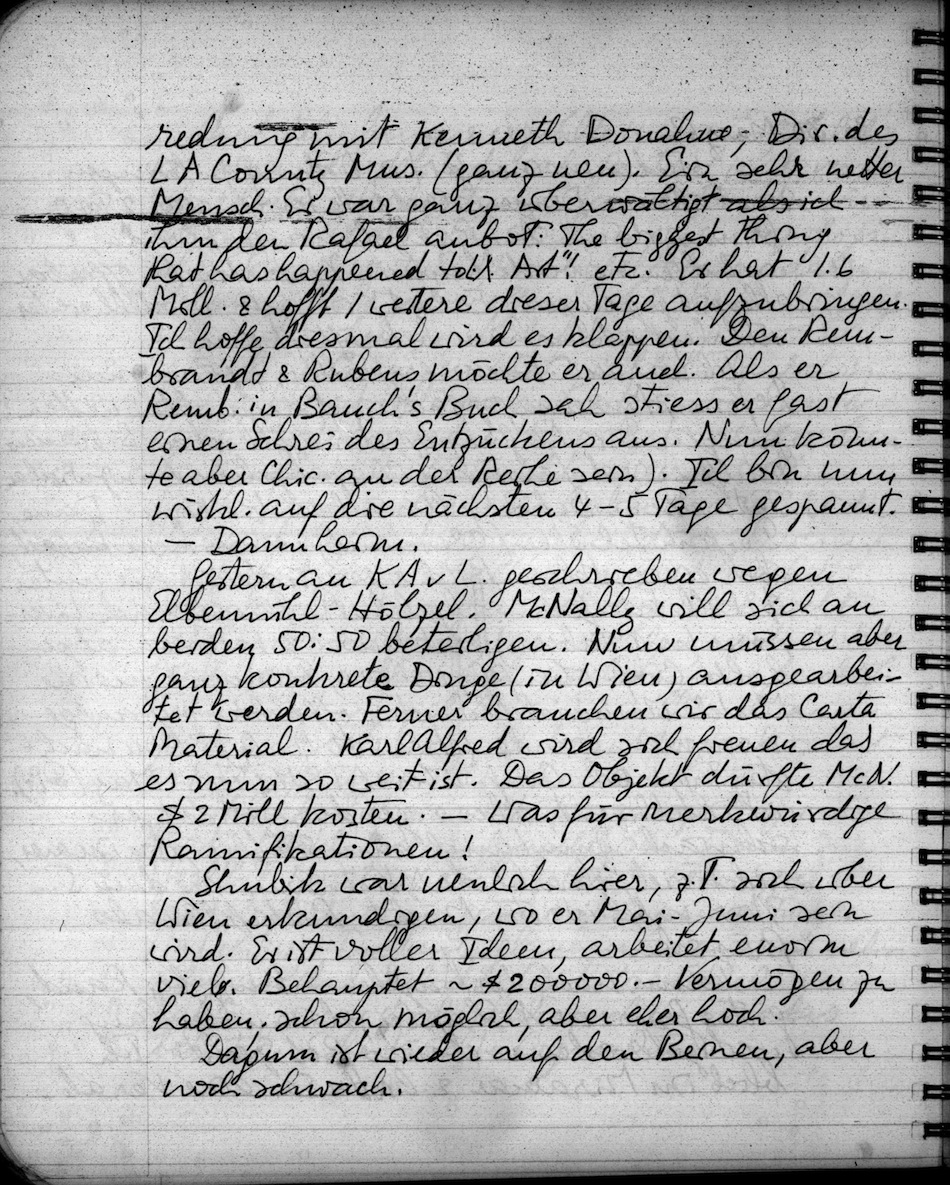 redung mit Kenneth Donahue, Dir. des
LA County Mus. (ganz neu). Ein sehr netter
Mensch. Er war ganz überwältigt als ich
ihm den Rafael anbot: "The biggest thing
that has happened to LA Art"! etc. Er hat 1.6
Mill. & hofft 1 weitere dieser Tage aufzubringen.
Ich hoffe diesmal wird es klappen. Den Rem-
brandt & Rubens möchte er auch. Als er
Remb. in Bauch's Buch sah stiess er fast
einen Schrei des Entzückens aus. Nun könn-
te aber Chic. an der Reihe sein). Ich bin nun
wirkl. auf die nächsten 4-5 Tage gespannt.
— Dannheim.
Gestern an KAvL. geschrieben wegen
Elbemühl-Hölzel. McNally will sich an
beiden 50:50 beteiligen. Nun müssen aber
ganz konkrete Dinge (in Wien) ausgearbei-
tet werden. Ferner brauchen wir das Carta
Material. Karl Alfred wird sich freuen das
es nun so weit ist. Das Objekt dürfte McN.
$ 2 Mill kosten. — Was für merkwürdige
Ramifikationen!
Shubik war neulich hier, z.T. sich über
Wien erkundigen, wo er Mai-Juni sein
wird. Er ist voller Ideen, arbeitet enorm
viel. Behauptet ~ $200000.- Vermögen zu
haben. schon möglich, aber eher hoch.
Dagum ist wieder auf den Beinen, aber
noch schwach.